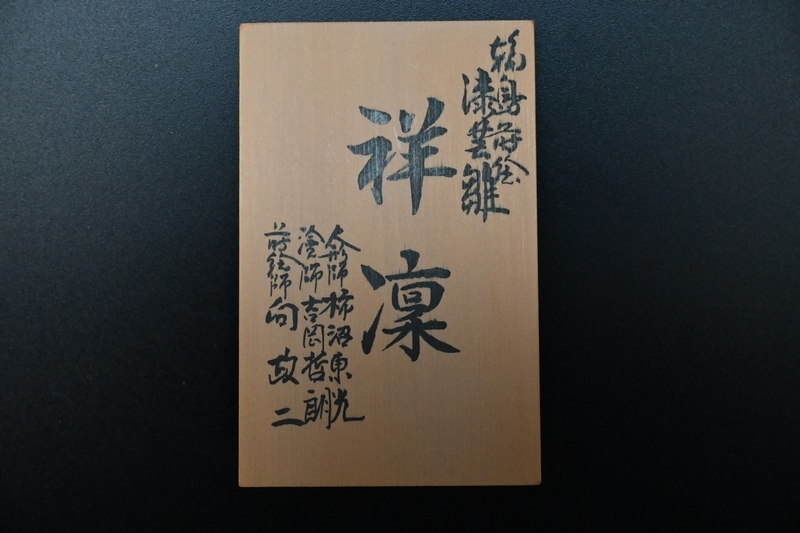 輪島蒔絵
漆芸雛
祥凜
人形師 柿沼東光
塗師 吉岡哲朗
蒔絵師 向政二